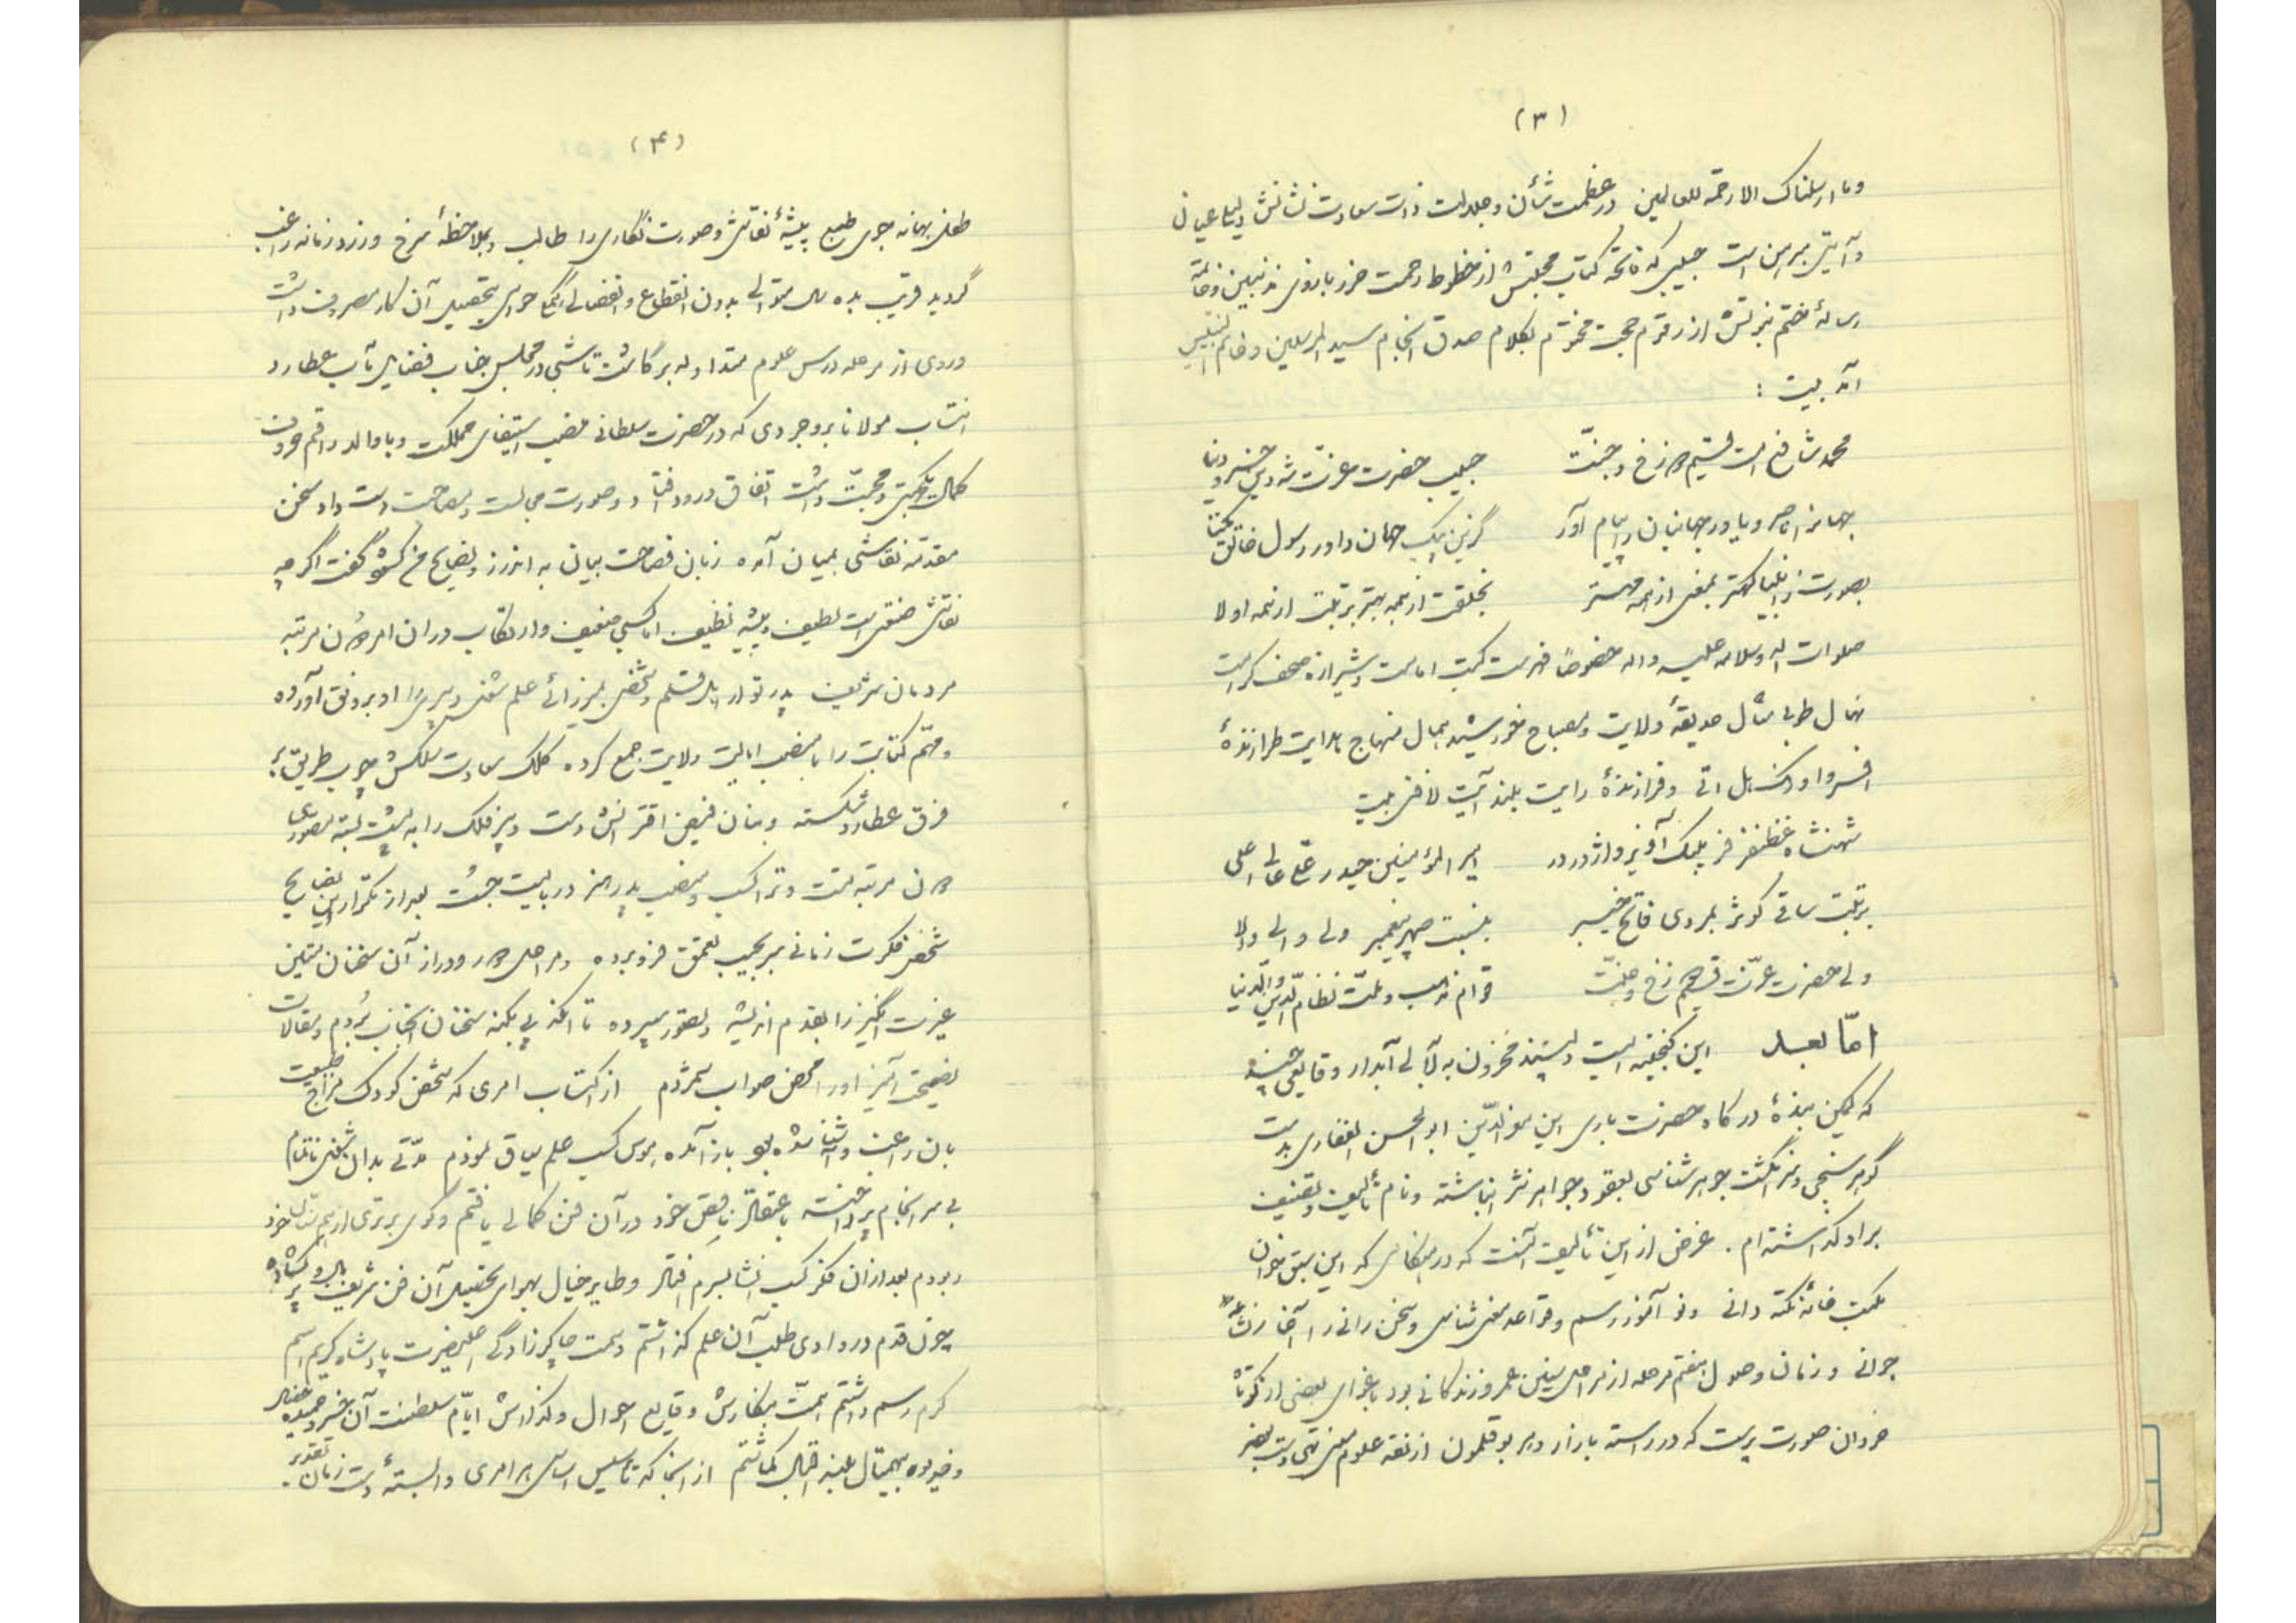 (۳)
وما ارسلناک الا رحمة للعالمین در عظمت شأن و جلالت ذات سعادت نشانش دلیل عیان
و آیتی مبرهن است حبیبی که فاتحه کتاب محبتش از خطوط رحمت
رسالهٔ ختم نبوتش از رقوم حجت مختوم بکلام صدق انجام سید المرسلین و خاتم النبیین
آمد بیت :
محمد شافع امت قسیم دوزخ و جنّت حبیب حضرت عزّت شه دین خسرو دنیا
جهانرا ناصر و یاور جهانبان را پیام آور گزین پیک جهان داور رسول خالق یکتا
بصورت ز انبیا کهتر بمعنی از همه مهتر بخلقت از همه بهتر برتبت از همه اولا
صلوات الله وسلامه علیه و اله خصوصاً فهرست کتب امامت و شیرازهٔ صحف کرامت
نهال طوبی مثال حدیقهٔ ولایت و مصباح خورشید جمال منهاج هدایت طرازندهٔ
افسر و اورنگ هل اتی و فرازندهٔ رایت بلند آیت لافتی بیت
شهنشاه غضنفر فر پلنگ آویز و اژدر در امیر المؤمنین حیدر علی عالی اعلی
برتبت ساقی کوثر بمردی فاتح خیبر بنسبت صهر پیغمبر ولی والی والا
ولی حضرت عزّت قسیم دوزخ و جنّت قوام مذهب و ملّت نظام الدین و الدنیا
امّا بعد این گنجینه ایست دلپسند مخزون به لآلی آبدار وقایعی چند
که کمین بندهٔ درگاه حضرت باری ابن معز الدّین ابو الحسن الغفاری بدست
گوهر سنجی و سر انگشت جوهر شناسی بعقود جواهر نثر انباشته و نام تألیف و تصنیف
بر او گذاشته ام . غرض از این تألیف آنست که در هنگامی که این سبق خوان
مکتب خانهٔ نکته دانی و نو آموز رسم و قواعد معنی شناسی و سخن رانی را آغاز نشأء
جوانی و زمان وصول هفتم مرحله از مراحل سنین عمر و زندگانی بود باغوای بعضی از کوتاه
خردان صورت پرست که در راسته بازار دهر بوقلمون از نقد علوم معنی تهی دست بهنر
(۴)
طفل بهانه جوی طبع پیشهٔ نقاشی و صورت نگاری را طالب و بملاحظهٔ سرخ و زرد زمانه راغب
گردید قریب بده سال متوالی بدون انقطاع و انفصال حواس بتحصیل آن کار مصروف داشت
و روی از مرحله درس علوم متداوله بر گاشت تا شبی در مجلس جناب فضایل مآب عطارد
انتساب مولانا بروجردی که در حضرت سلطانی منصب استیفای مملکت و با والد راقم حروف
کمال یکجهتی و محبّت داشت اتفاق ورود افتاد و صورت مجالست و مصاحبت دست داد و سخن
مقدمهٔ نقاشی بمیان آمده زبان فصاحت بیان به اندرز و نصایح من گشوده گفت اگر چه
نقاشی صنعتی است لطیف و پیشه نظیف اما کسبی ضعیف و ارتکاب در آن امر دون مرتبه
مردمان شریف پدر تو ارباب قلم و شخص میرزائی علم شغل دبیری را او برونق آورده
و مهّم کتابت را با منصب ایالت ولایت جمع کرده کلک سعادت سلکش چوب طریق بر
فرق عطارد شکسته و بنان فیض اقترانش دست دبیر فلک را به پشت بسته مصوری
دون مرتبه تست و ترا کسب و منصب پدر هنر در بایست جست بعد از تکرار این نصایح
شخص فکرت زمانی سر بجیب تعمق فرو برده و مراحل دور و دراز آن سخنان متین
عبرت انگیز را بقدم اندیشه و تصور سپرده تا آنکه پی بکنه سخنان آنجناب بُردم و مقالات
نصیحت آمیز او را محض صواب شمردم از اکتساب امری که شخص کودک مزاج طبیعت
بآن راغب و آشنا شده بود باز آمده هوس کسب علم سیاق نمودم مدّتی بدان شغل ناتمام
بی سر انجام پرداخته باعتقاد ناقص خود در آن فن کمالی یافتم و گوی برتری از همسالان خود
ربودم بعد از آن فکر کسب انشا بسرم افتاد و طایر خیال بهوای تحصیل آن فن شریف بال و پر گشاده
چون قدم در وادی طلب آن علم گذاشتم و سمت چاکر زادگی اعلیحضرت پادشاه کریم اسم
کرم رسم داشتم همّت بنگارش وقایع احوال و گذارش ایّام سلطنت آن خسرو حمیده خصال
و خدیو بیهمال بلند اقبال گماشتم از آنجا که تأسیس اساس هر امری وابستهٔ دست زبان تقدیر .